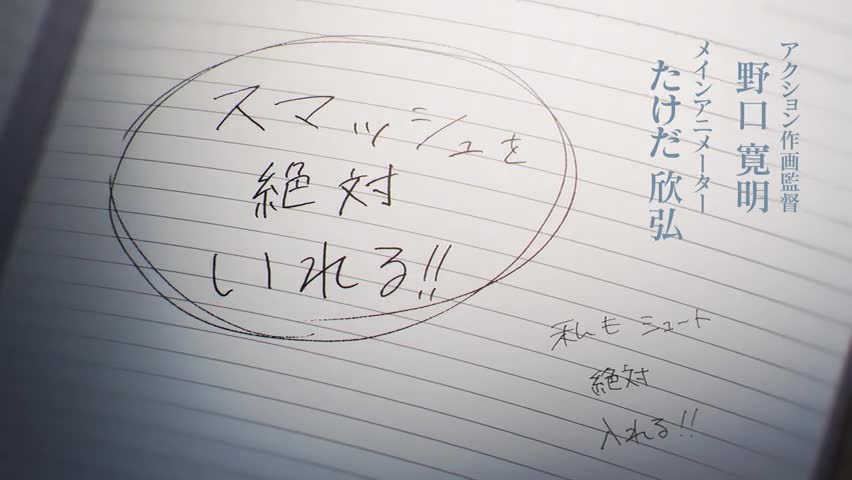 スマッシュを
絶対
いれる!!
私もシュート
絶対
入れる!!
アクション作画監督
野口 寛明
メインアニメーター
たけだ 欣弘